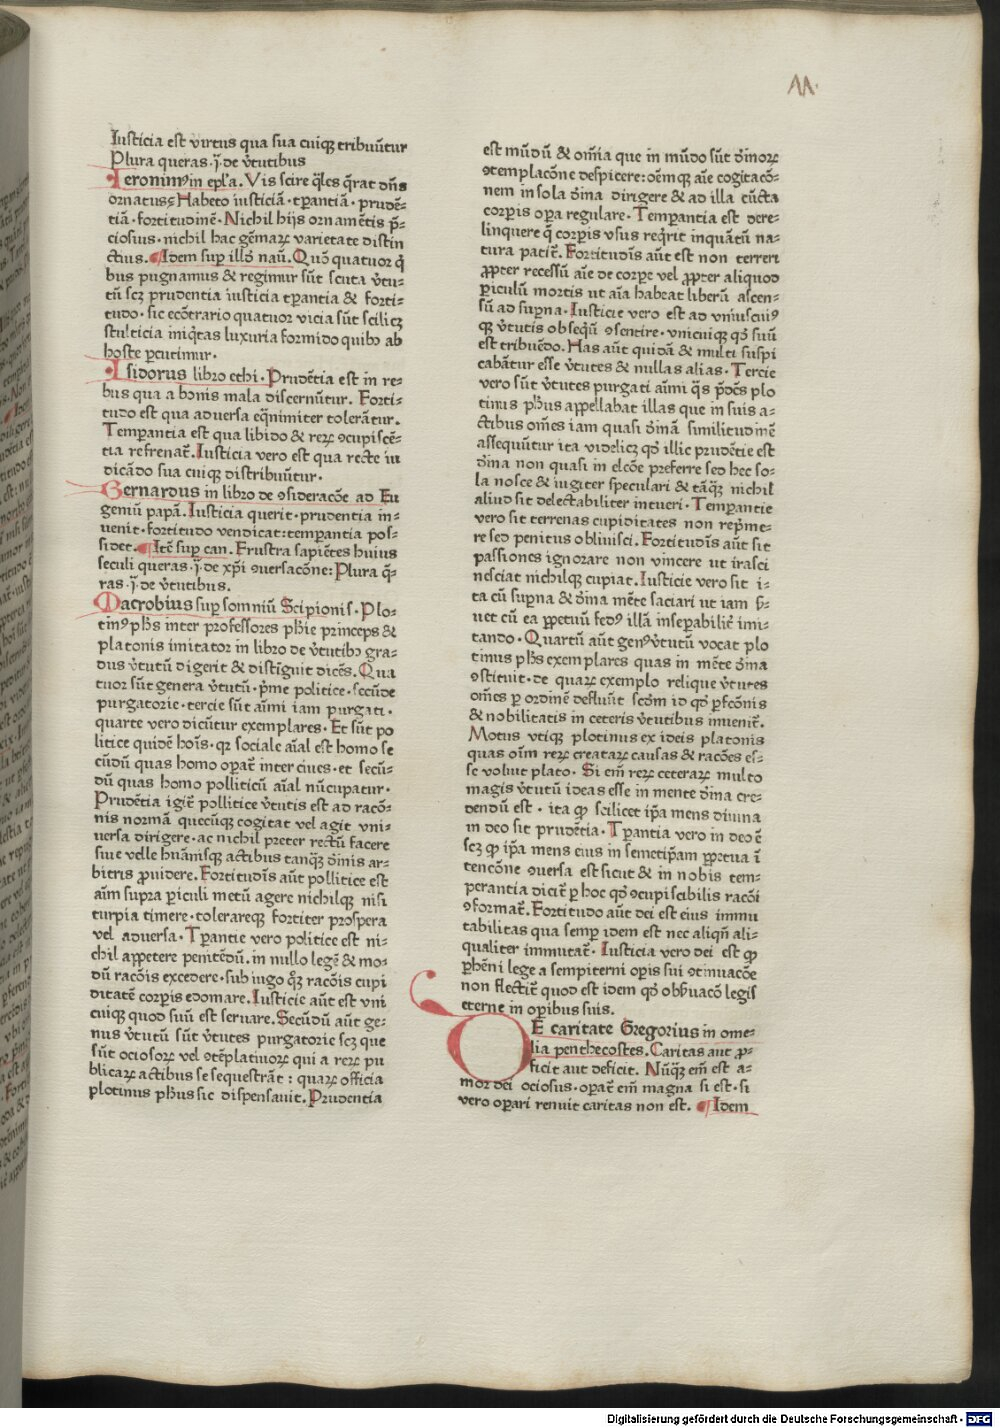 11.
Iusticia est virtus qua sua cuiqꝫ tribuūtur
Plura queras.ī.de v̄tutibus
Ieronimꝰ in epl'a. Vis scire q̄les q̄rat dn̄s
ornatus: Habeto iusticiā. tꝑantiā. prudē-
tiā. fortitudinē. Nichil hijs ornamētis p̄-
ciosius. nichil hac gēmaꝝ varietate distin
ctius. Idem suꝑ illo naū. Quō quatuor q̄
bus pugnamus & regimur sūt scuta v̄tu-
tū scꝫ prudentia iusticia tꝑantia & forti-
tudo. sic ecōtrario quatuor vicia sūt scilicꝫ
stulticia iniq̄tas luxuria formido quibꝰ ab
hoste ꝑcutimur.
Isidorus libro ethi. Prudētia est in re-
bus qua a bonis mala discernūtur. Forti-
tudo est qua aduersa eq̄nimiter tolerātur.
Temꝑantia est qua libido & reꝝ ꝯcupiscē-
tia refrenat̄. Iusticia vero est qua recte iu
dicādo sua cuiqꝫ distribuūtur.
Bernardus in libro de ꝯsideracōe ad Eu
geniū papā. Iusticia querit. prudentia in-
uenit. fortitudo vendicat: temꝑantia pos-
sidet. Itē suꝑ can. Frustra sapiētes huius
seculi queras.ī.de xp̄i ꝯuersacōne: Plura q̄-
ras.ī.de v̄tutibus.
Macrobius suꝑ somniū Scipionis. Plo-
tinꝰ ph̄s inter professores ph̄ie princeps &
platonis imitator in libro de v̄tutibꝰ gra-
dus v̄tutū digerit & distinguit dicēs. Qua
tuor sūt genera v̄tutū. p̄me politice. secūde
purgatorie. tercie sūt aīmi iam purgati.
quarte vero dicūtur exemplares. Et sūt po
litice quidē hoīs. qꝛ sociale aīal est homo se
cūdū quas homo oꝑat̄ inter ciues. et secū-
dū quas homo polliticū aīal nūcupatur.
Prudētia igit̄ pollitice v̄tutis est ad racō-
nis normā quecūqꝫ cogitat vel agit vni-
uersa dirigere. ac nichil preter rectū facere
siue velle hūanisqꝫ actibus tanqꝫ d̄inis ar-
bitris ꝓuidere. Fortitudīs aūt pollitice est
aīm supra ꝑiculi metū agere nichilqꝫ nisi
turpia timere. tolerareqꝫ fortiter prospera
vel aduersa. Tꝑantie vero politice est ni-
chil appetere penitēdū. in nullo legē & mo-
dū racōis excedere. sub iugo qꝫ racōis cupi
ditatē corꝑis edomare. Iusticie aūt est vni
cuiqꝫ quod suū est seruare. Secūdū aūt ge-
nus v̄tutū sūt v̄tutes purgatorie scꝫ que
sūt ociosoꝝ vel ꝯtēplatiuoꝝ qui a reꝝ pu
blicaꝝ actibus se sequestrāt: quaꝝ officia
plotinus ph̄us sic dispensauit. Prudentia
est mūdū & om̄ia que in mūdo sūt d̄inoꝝ
ꝯtemplacōne despicere: oēmqꝫ aīe cogitacō-
nem in sola d̄ina dirigere & ad illa cūcta
corꝑis oꝑa regulare. Temꝑantia est dere-
linquere q̄ corꝑis vsus req̄rit inquātū na-
tura patit̄. Fortitudīs aūt est non terreri
ꝓpter recessū aīe de corꝑe vel ꝓpter aliquod
ꝑiculū mortis ut aīa habeat liberū ascen-
sū ad suꝑna. Iusticie vero est ad vniuscuiꝰ
qꝫ v̄tutis obseq̄ū ꝯsentire. vnicuiqꝫ qd̄ suū
est tribuēdo. Has aūt quidā & multi suspi
cabātur esse v̄tutes & nullas alias. Tercie
vero sūt v̄tutes purgati aīmi q̄s p̄dc̄s plo
tinus ph̄us appellabat illas que in suis a-
ctibus om̄es iam quasi d̄inā similitudinē
assequūtur ita videlicꝫ qd̄ illic prudētie est
d̄ina non quasi in elcōe preferre sed hec so-
la nosce & iugiter speculari & tāqꝫ nichil
aliud sit delectabiliter intueri. Temꝑantie
vero sit terrenas cupiditates non rep̄me-
re sed penitus obliuisci. Fortitudīs aūt sit
passiones ignorare non vincere ut irasci
nesciat nichilqꝫ cupiat. Iusticie vero sit i-
ta cū suꝑna & d̄ina mēte saciari ut iam ẜ-
uet cū ea ꝑpetuū fedꝰ illā inseꝑabilit̄ imi-
tando. Quartū aūt genꝰ v̄tutū vocat plo
tinus ph̄s exemplares quas in mēte d̄ina
ꝯstituit. de quaꝝ exemplo relique v̄tutes
om̄es ꝑ ordinē defluūt scd̄m id qd̄ ꝑfcōnis
& nobilitatis in ceteris v̄tutibus inuenit̄.
Motus vtiqꝫ plotinus ex ideis platonis
quas oīm reꝝ creataꝝ causas & racōes es-
se voluit plato. Si em̄ reꝝ ceteraꝝ multo
magis v̄tutū ideas esse in mente d̄ina cre-
dendū est. ita qd̄ scilicet ip̄a mens diuina
in deo sit prudētia. Tꝑantia vero in deo ē
scꝫ qd̄ ip̄a mens eius in semetip̄am ꝑpetua ī
tencōne ꝯuersa est sicut & in nobis tem-
perantia dicit̄ ꝑ hoc qd̄ ꝯcupiscibilis racōi
ꝯformat̄. Fortitudo aūt dei est eius immu
tabilitas qua semꝑ idem est nec aliqn̄ ali-
qualiter immutat̄. Iusticia vero dei est qd̄
ꝑhēni lege a sempiterni oꝑis sui ꝯtinuacōe
non flectit̄ quod est idem qd̄ obẜuacō legis
eterne in oꝑibus suis.
DE caritate Gregorius in ome-
lia penthecostes. Caritas aut ꝓ-
ficit aut deficit. Nūqꝫ em̄ est a-
mor dei ociosus. oꝑat̄ em̄ magna si est. si
vero oꝑari renuit caritas non est. Idem
Digitalisierung gefördert durch die Deutsche Forschungsgemeinschaft - DFG